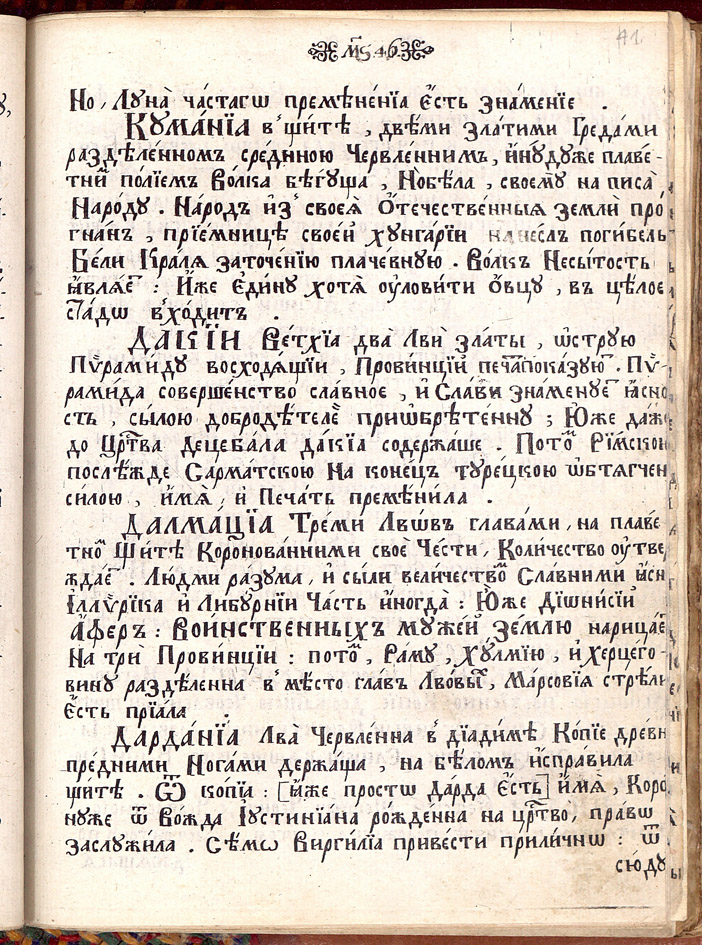 М҃Ѕ. 46.
41.
Но, Луна̀ ча́стагѡ премѣне́нїѧ є҆́сть зна́менїе .
КꙊМА́НЇА в̾ щи́тѣ , двѣ́ми зла́тими Греда́ми
раздѣле́нномъ сре́диною Червле́ннимъ, и҆нꙋ́дꙋже плаве-
тни̑ по́лїемъ Во́лка бѣгꙋ́ща , Нобѣ́ла , своемꙋ̀ написа̀
Наро́дꙋ . На́родъ из̾ своеѧ̀ О҆те́чественныѧ землѝ про
гна́нъ , прїе́мницѣ свое́й хꙋнга́рїи нанеслъ поги́бель
Бе́ли Кра́лѧ заточе́нїю плаче́вную . Во́лкъ Несы́тость
ꙗ҆влѧ́е : И҆́же Є҆ди́нꙋ хотѧ̀ ᲂу҆лови́ти О҆́вцꙋ , въ цѣ́лое
ста́дѡ вхо́дитъ .
ДА́КЇИ Ве́тхїа два̀ Лви̑ зла́ты , ѡ҆́струю
Пѷрами́дꙋ восходѧ́щїи , Прови́нцїи печа́т показꙋю . Пѷ-
рами́да соверше́нство сла́вное , и҆ Сла́ви зна́менꙋе ꙗ҆́сно
сть , сы́лою добродѣ́телей при́ѡбрѣ́теннꙋ ; Ю҆́же да́же
до Црⷭ҇тва Децеба́ла да́кїа содержа́ше . Пото́м Ри́мскою
послѣ́жде Сарма́тскою На коне́цъ тꙋре́цкою ѡ҆бтѧгчен
си́лою , и҆́мѧ , и҆ Печа́ть премѣни́ла .
ДАЛМА́ЦЇА Тре́ми Лвѡ́въ глава́ми , на плаве
тно́м Щи́тѣ Коронова́нними своє̀ Че́сти , Коли́чество ᲂу҆тве
ждае . Лю́дми ра́зꙋма , и҆ сы́ли вели́чествѡм Сла́вними ꙗ҆́сн
І҆ллѷ́рїка и҆ Либꙋ́рнїи Ча́сть и҆ногда̀ : Ю҆́же Дїѡни́сїй
А҆́феръ : Во́инственныхъ мꙋже́й зе́млю нарица́е
На три̑ Прови́нцїи : пото́м , Ра́мꙋ , Хꙋлмі́ю , и҆ Херце́го-
винꙋ разде́лєнна в̾ мѣ́сто гла́въ Лво́вы , Ма́рсовїа стрѣ́ли
є҆́сть прїѧла̀ .
ДАРДА́НЇА Лва̀ Червле́нна в̾ дїади́мѣ Ко́пїе древн
пре́дними Нога́ми держа́ща , на бѣ́ломъ и҆спра́вила
щи́тѣ . Ѿ ко́пїа : [ꙗ҆́же про́стѡ да́рда є҆́сть] и҆́мѧ , Коро
нꙋже ѿ Во́жда І҆ꙋстинїа́на рожде́нна на црⷭ҇тво , пра́вѡ
заслꙋжи́ла . Сѣ́мѡ Вирги́лїа приве́сти прили́чнѡ : ѿ
сю́дꙋ